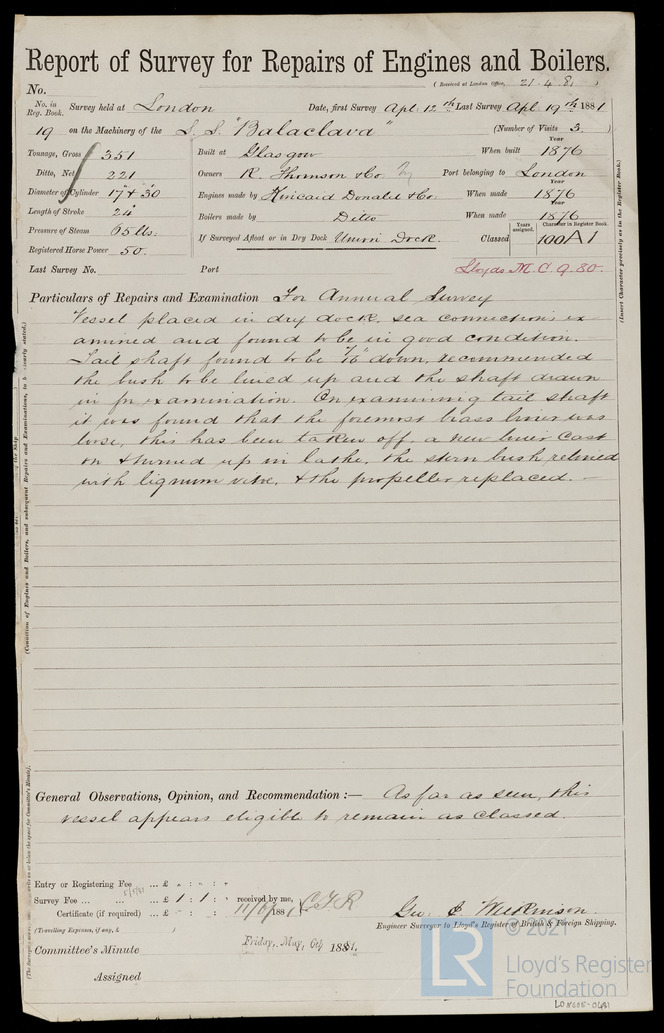 Report of Survey for Repairs of Engines and Boilers.
(Received at London Office, 21.4.81)
No.
No. in Reg. Book. Survey held at London Date, first Survey Apl. 12th Last Survey Apl. 19th 1881
19 on the Machinery of the S.S. "Balaclava" (Number of Visits 3.)
Tonnage, Gross 351 Built at Glasgow When built Year 1876
Ditto, Net 221 Owners R. Thomson & Co. Port belonging to London
Diameter of Cylinder 17" + 30" Engines made by Kincaid Donald & Co. When made Year 1876
Length of Stroke 24" Boilers made by Ditto When made Year 1876
Pressure of Steam 65 lbs. If Surveyed Afloat or in Dry Dock Union Dock. Classed Years assigned. Character in Register Book. 100A1
Registered Horse Power 50.
Last Survey No. Port Lloyds M.C. 9.80.
Particulars of Repairs and Examination For Annual Survey
Vessel placed in dry dock, sea connections ex-
amined and found to be in good condition.
Tail shaft found to be down, recommended
the bush to be lined up and the shaft drawn
in for examination. On examining tail shaft
it was found that the foremost brass liner was
loose, this has been taken off, a new liner cast
on & turned up in lathe, the stern bush relined
with lignum vitæ, & the propeller replaced.
General Observations, Opinion, and Recommendation :— As far as seen, this
vessel appears eligible to remain as classed.
Entry or Registering Fee ... £ : :
Survey Fee ... ... £ 1 : 1 : received by me,
Certificate (if required) ... £ : : 1881
(Travelling Expenses, if any, £ )
Engineer Surveyor to Lloyd's Register of British & Foreign Shipping.
Committee's Minute Friday, May, 6th 1881.
Assigned
(Insert Character precisely as in the Register Book.)
© 2021
LR
Lloyd's Register
Foundation